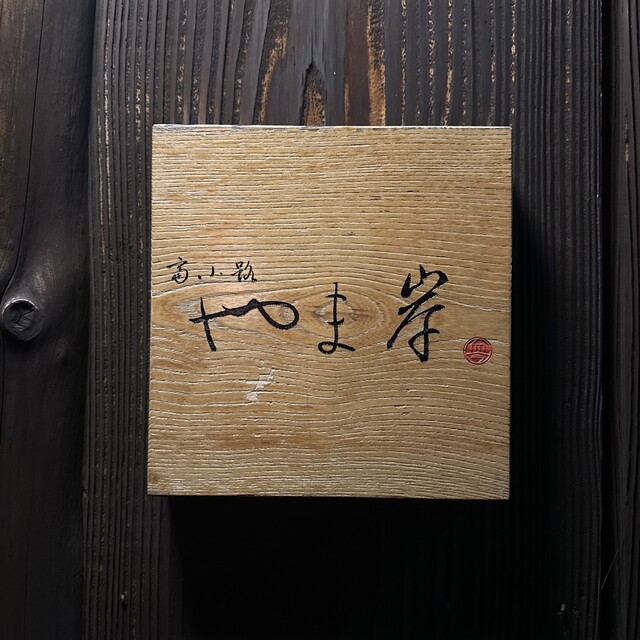 高小路
やま岸